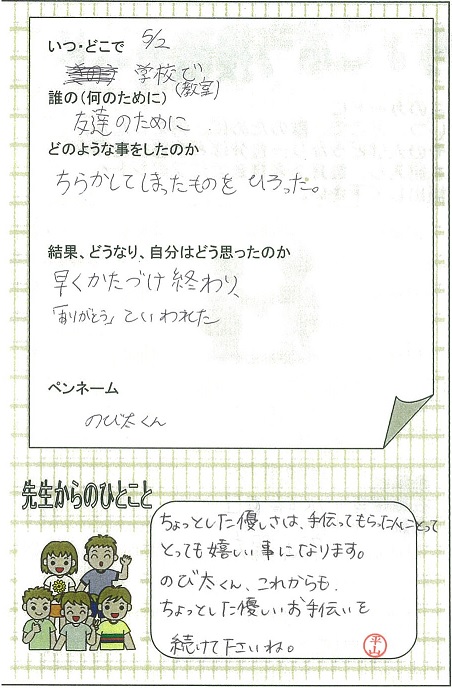 いつ・どこで 5/2
学校で(教室)
誰の(何のために)
友達のために
どのような事をしたのか
ちらかしてしまったものをひろった。
結果、どうなり、自分はどう思ったのか
早くかたづけ終わり、
「ありがとう」といわれた
ペンネーム
のび太くん
先生からのひとこと
ちょっとした優しさは、手伝ってもらった人にとって
とっても嬉しい事になります。
のび太くん、これからも、
ちょっとした優しいお手伝いを
続けて下さいね。
平山